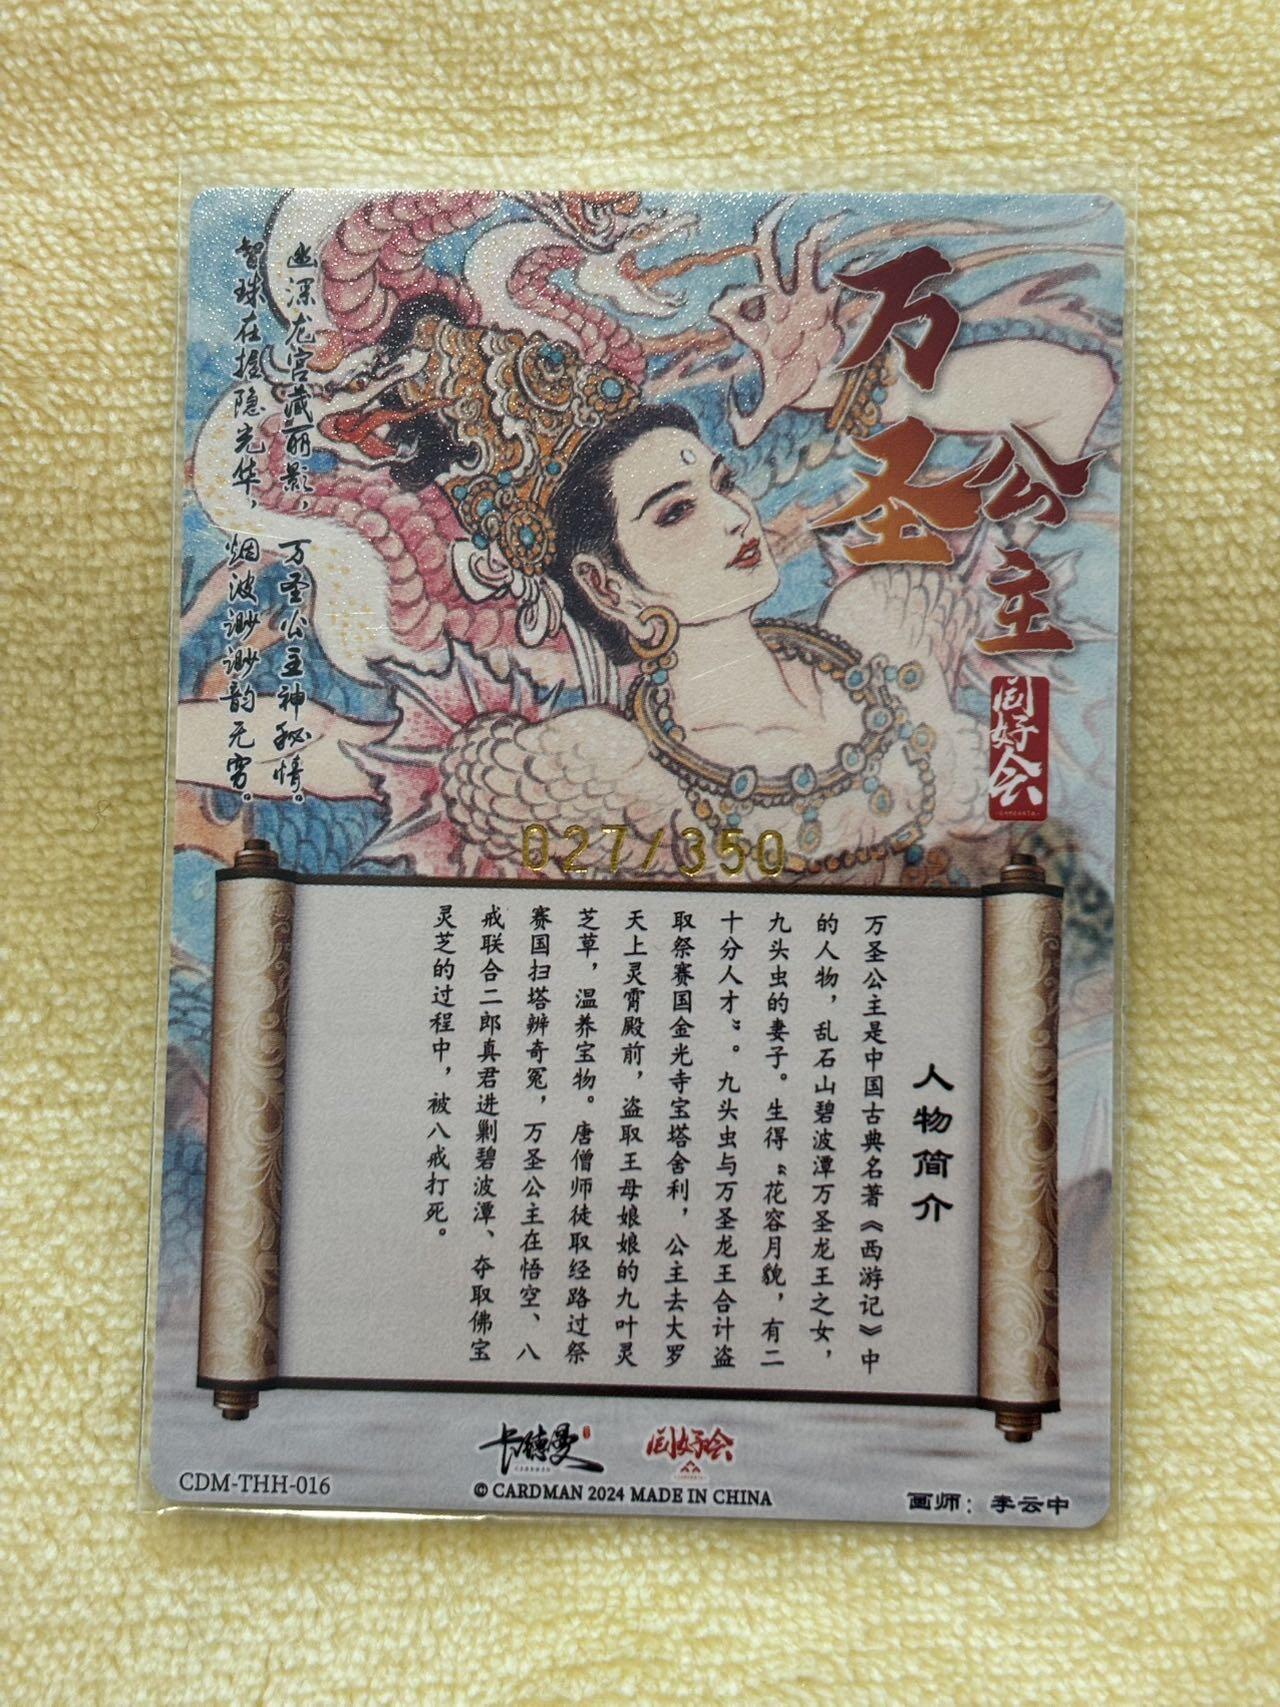 万圣公主
同好会
幽深龙宫藏丽影，万圣公主神秘情。
智珠在握隐光华，烟波渺渺韵无穷。
027/350
人物简介
万圣公主是中国古典名著《西游记》中
的人物，乱石山碧波潭万圣龙王之女，
九头虫的妻子。生得“花容月貌，有二
十分人才”。九头虫与万圣龙王合计盗
取祭赛国金光寺宝塔舍利，公主去大罗
天上灵霄殿前，盗取王母娘娘的九叶灵
芝草，温养宝物。唐僧师徒取经路过祭
赛国扫塔辨奇冤，万圣公主在悟空、八
戒联合二郎真君进剿碧波潭、夺取佛宝
灵芝的过程中，被八戒打死。
卡德曼
同好会
© CARDMAN 2024 MADE IN CHINA
CDM-THH-016
画师：李云中